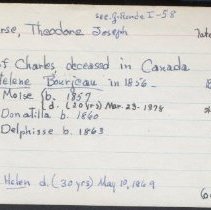 see G. Ronde I-58
rse, Theodore Joseph late
of Charles deceased in Canada
Helene Bourjeau in 1856 18
Moise {b. 1857
{d. (20 yrs) Mar. 23-1878
Donatilla b. 1860
Delphisse b. 1863
Helen d. (30 yrs) May 19, 1869
60